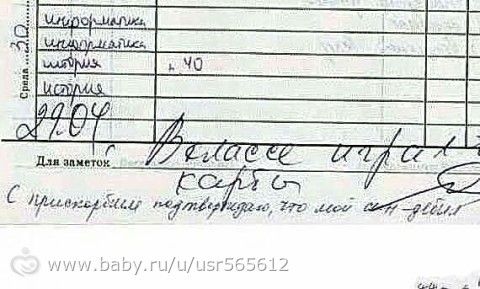 информатика
информатика
история п 40
история
Среда 30
29.04
В классе играл в
Для заметок
карты
С прискорбием подтверждаю, что мой сын-дебил
www.baby.ru/u/usr565612